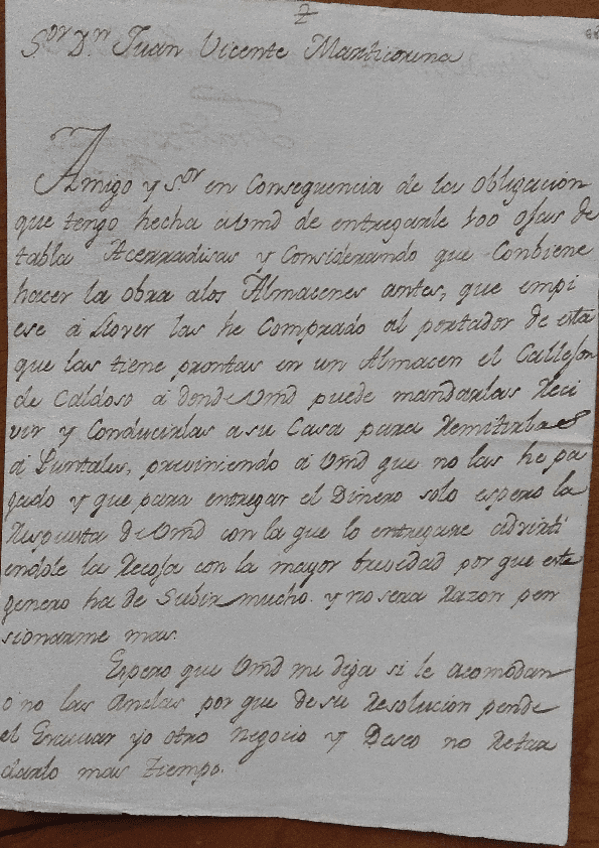 2
Sor Dn Juan Vicente Manticorena
Amigo y Sor en Consequencia de la obligacion
que tengo hecha a Vmd de entregarle 100 ojas de
tabla Acerradisas y Considerando que Conbiene
hacer la obra alos Almacenes antes, que empi
ese á Llover las he Comprado al portador de esta
que las tiene prontas en un Almacen el Callejon
de Caldoso á donde Vmd puede mandarlas Reci
vir y Conducirlas asu Casa para Remitirlas
á Puntales, previniendo á Vmd que no las he pa
gado y que para entregar el Dinero solo espero la
Respuesta de Vmd con la que lo entregare adbirti
endole la Recoja con la mayor brevedad por que este
genero ha de Subir mucho y no sera Razon pen
sionarme mas.
Espero que Vmd me diga si le acomodan
ó no las Anclas por que de su Resolucion pende
el Evacuar yo otro negocio y Deseo no Retar
darlo mas tiempo.